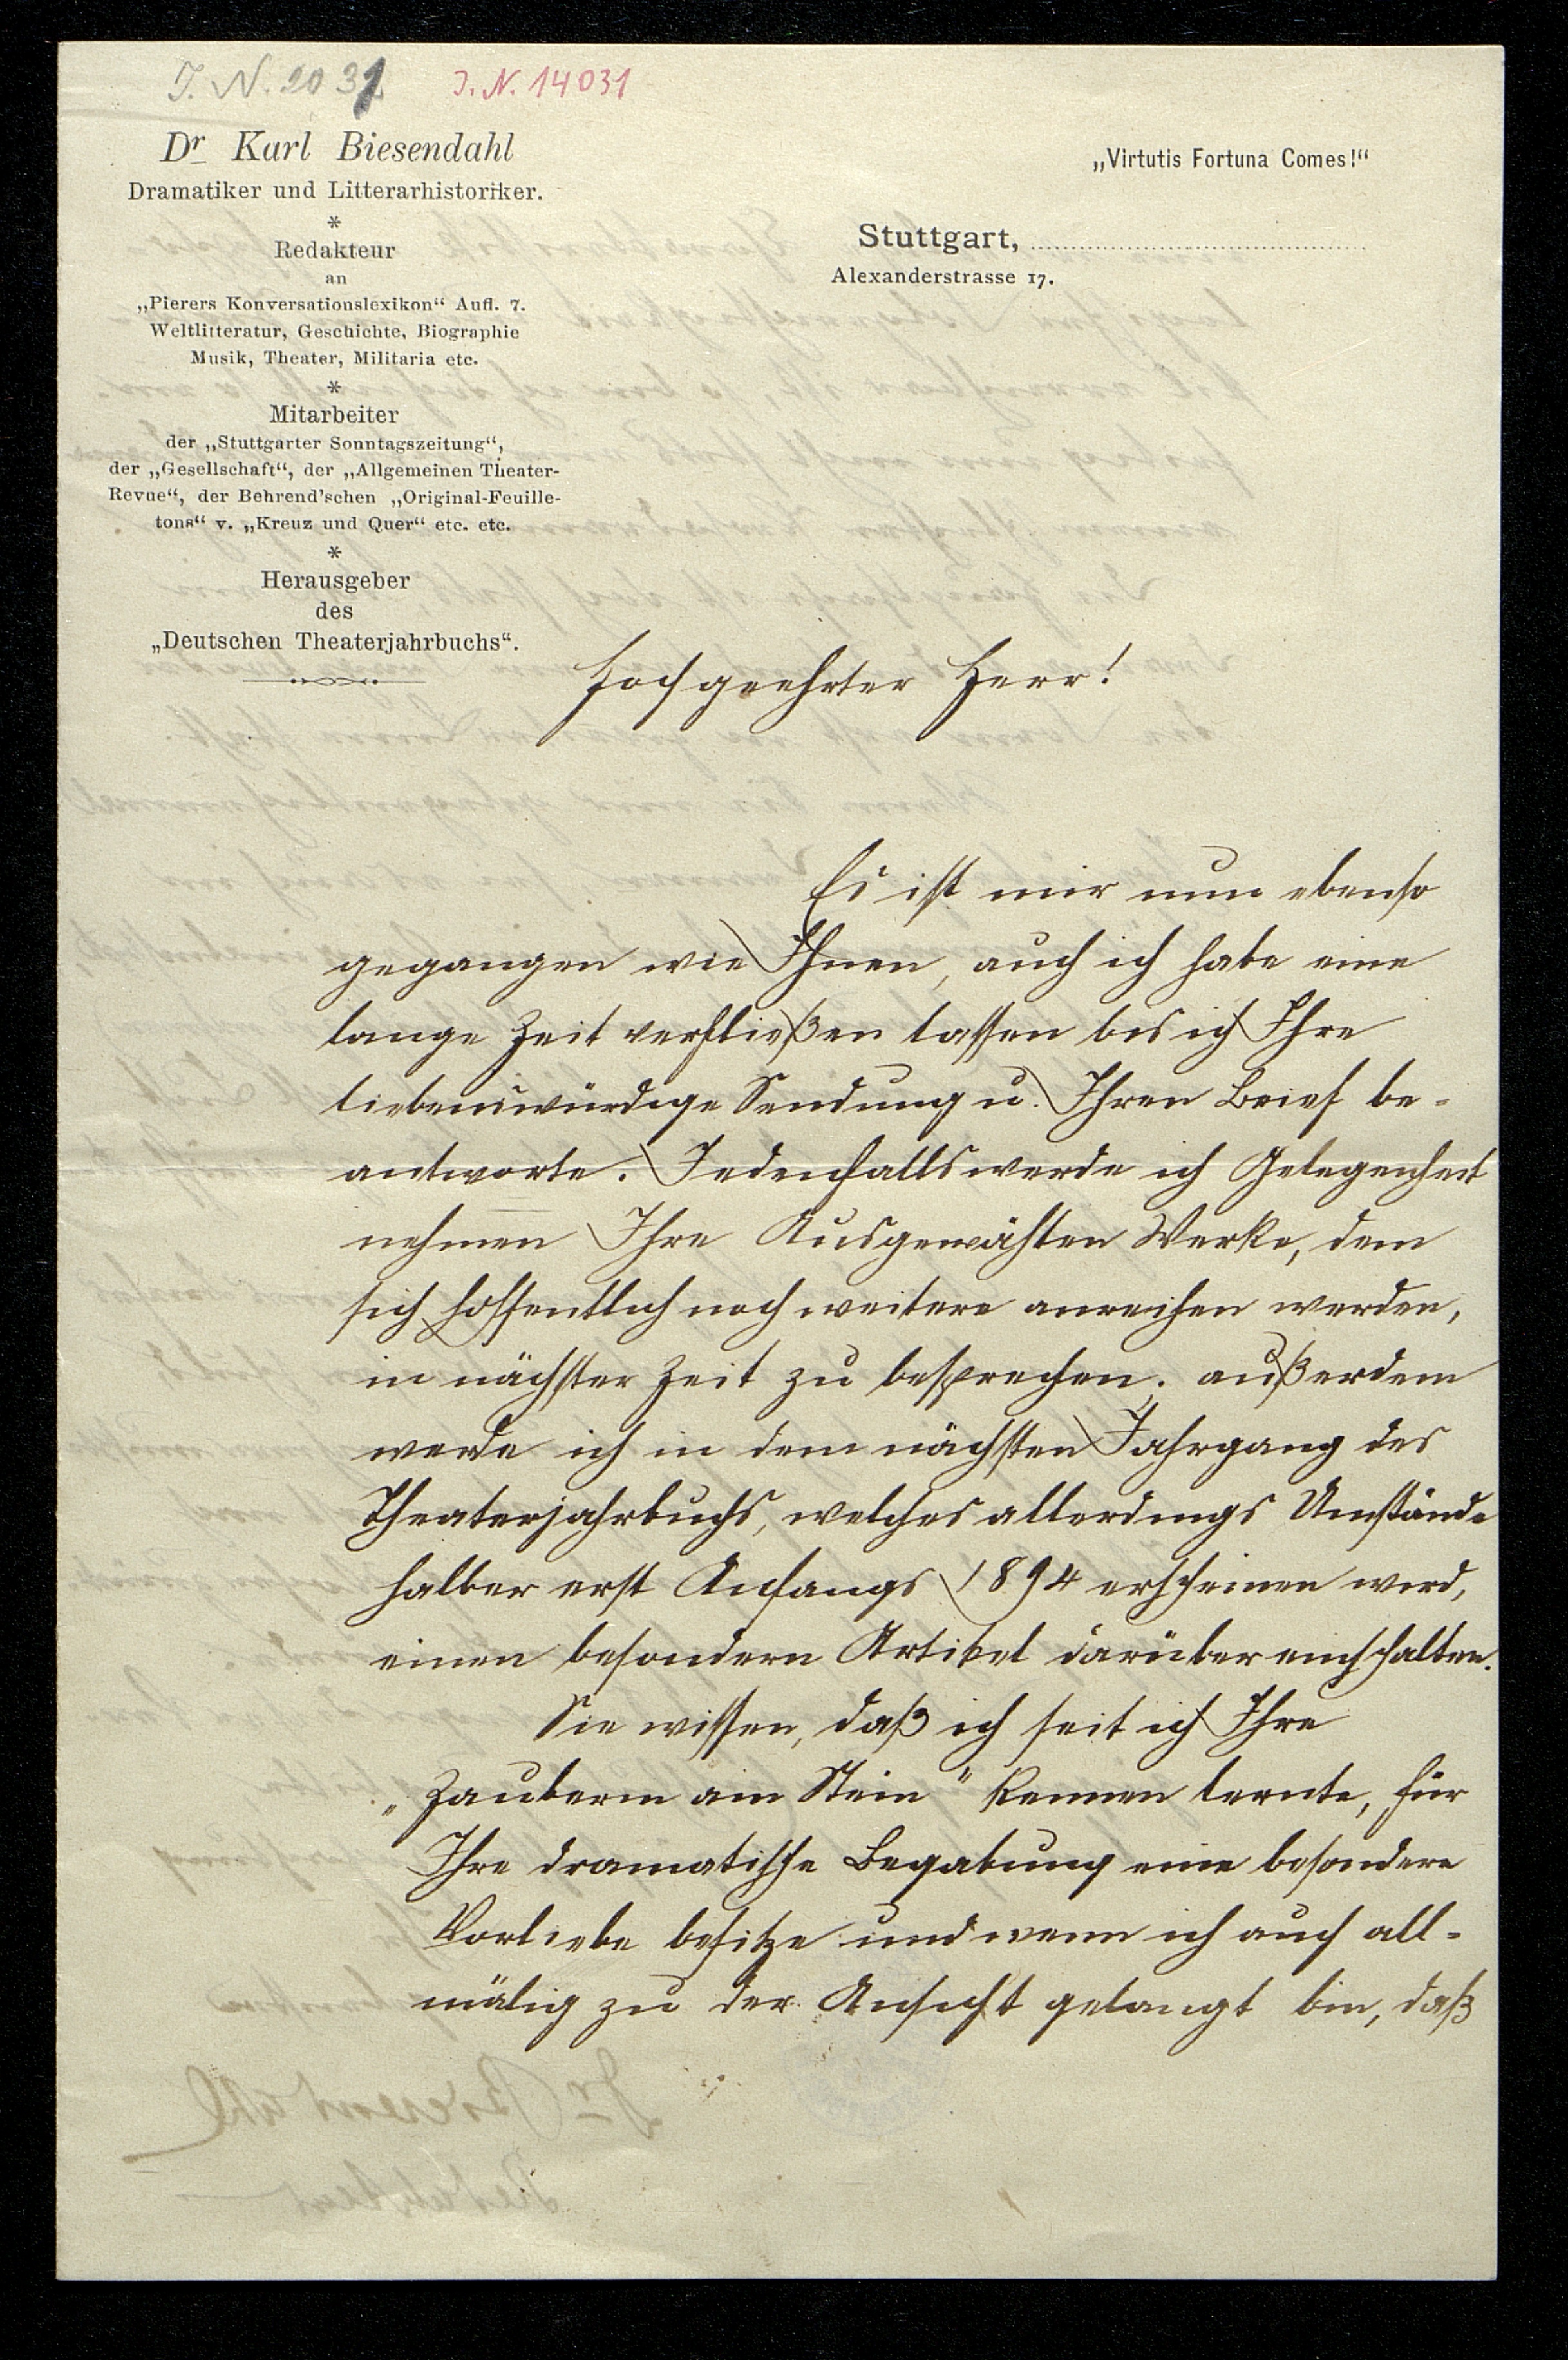 J. N. 2031 J. N. 14031
Dr Karl Biesendahl
Dramatiker und Litterarhistoriker.
*
Redakteur
an
„Pierers Konversationslexikon“ Aufl. 7.
Weltlitteratur, Geschichte, Biographie
Musik, Theater, Militaria etc.
*
Mitarbeiter
der „Stuttgarter Sonntagszeitung“,
der „Gesellschaft“, der „Allgemeinen Theater-
Revue“, der Behrend'schen „Original-Feuille-
tons“ v. „Kreuz und Quer“ etc. etc.
*
Herausgeber
des
„Deutschen Theaterjahrbuchs“.
„Virtutis Fortuna Comes!“
Stuttgart,
Alexanderstrasse 17.
Hochgeehrter Herr!
Es ist mir nun ebenso
gegangen wie Ihnen, auch ich habe eine
lange Zeit verfließen lassen bis ich Ihre
liebenswürdige Sendung u. Ihren Brief be-
antworte. Jedenfalls werde ich Gelegenheit
nehmen Ihre Ausgewählten Werke, dem
sich hoffentlich noch weitere anreihen werden,
in nächster Zeit zu besprechen; außerdem
werde ich in dem nächsten Jahrgang des
Theaterjahrbuchs, welches allerdings Umstände
halber erst Anfangs 1894 erscheinen wird,
einen besondern Artikel darüber einschalten.
Sie wissen, daß ich seit ich Ihre
„Zauberin am Stein“ kennen lernte, für
Ihre dramatische Begabung eine besondere
Vorliebe besitze und wenn ich auch all-
mälig zu der Ansicht gelangt bin, daß